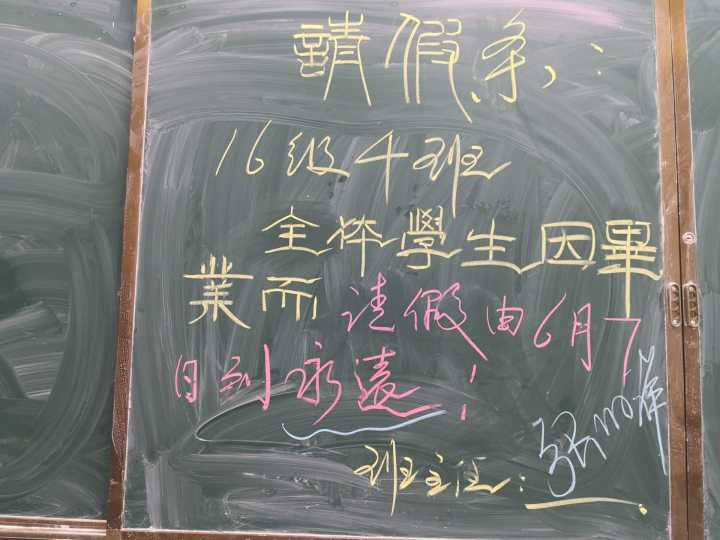 請假条:
16级4班
全体學生因畢
業而请假由6月7
日到永遠!
班主任: